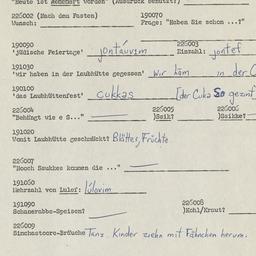 "Heute ist Aedemert worden" (Ausdruck benutzt?)
226002 (Nach dem Fasten) 190070
Wunsch: Frage: "Haben Sie schon ...?"
190090 226003
'Jüdische Feiertage' jontáuvim Einzahl: jontef
191030
'wir haben in der Laubhütte gegessen' wir häm in der
190100
'das Laubhüttenfest' cukkas [der Cuka So gezinf
226004 226005 226006
"Behüngt wie e S..." )Ssik? )Ssikke?
191020
Womit Laubhütte geschmückt? Blätter, Früchte
226007
"Nooch Ssukkes kommen die ..."
191060
Mehrzahl von Lulef: lúlovim
191090 226008
Schanerabbe-Speisen? )Kohl/Kraut?
226009
Simchastoore-Bräuche Tanz. Kinder ziehn mit Fähnchen herum.